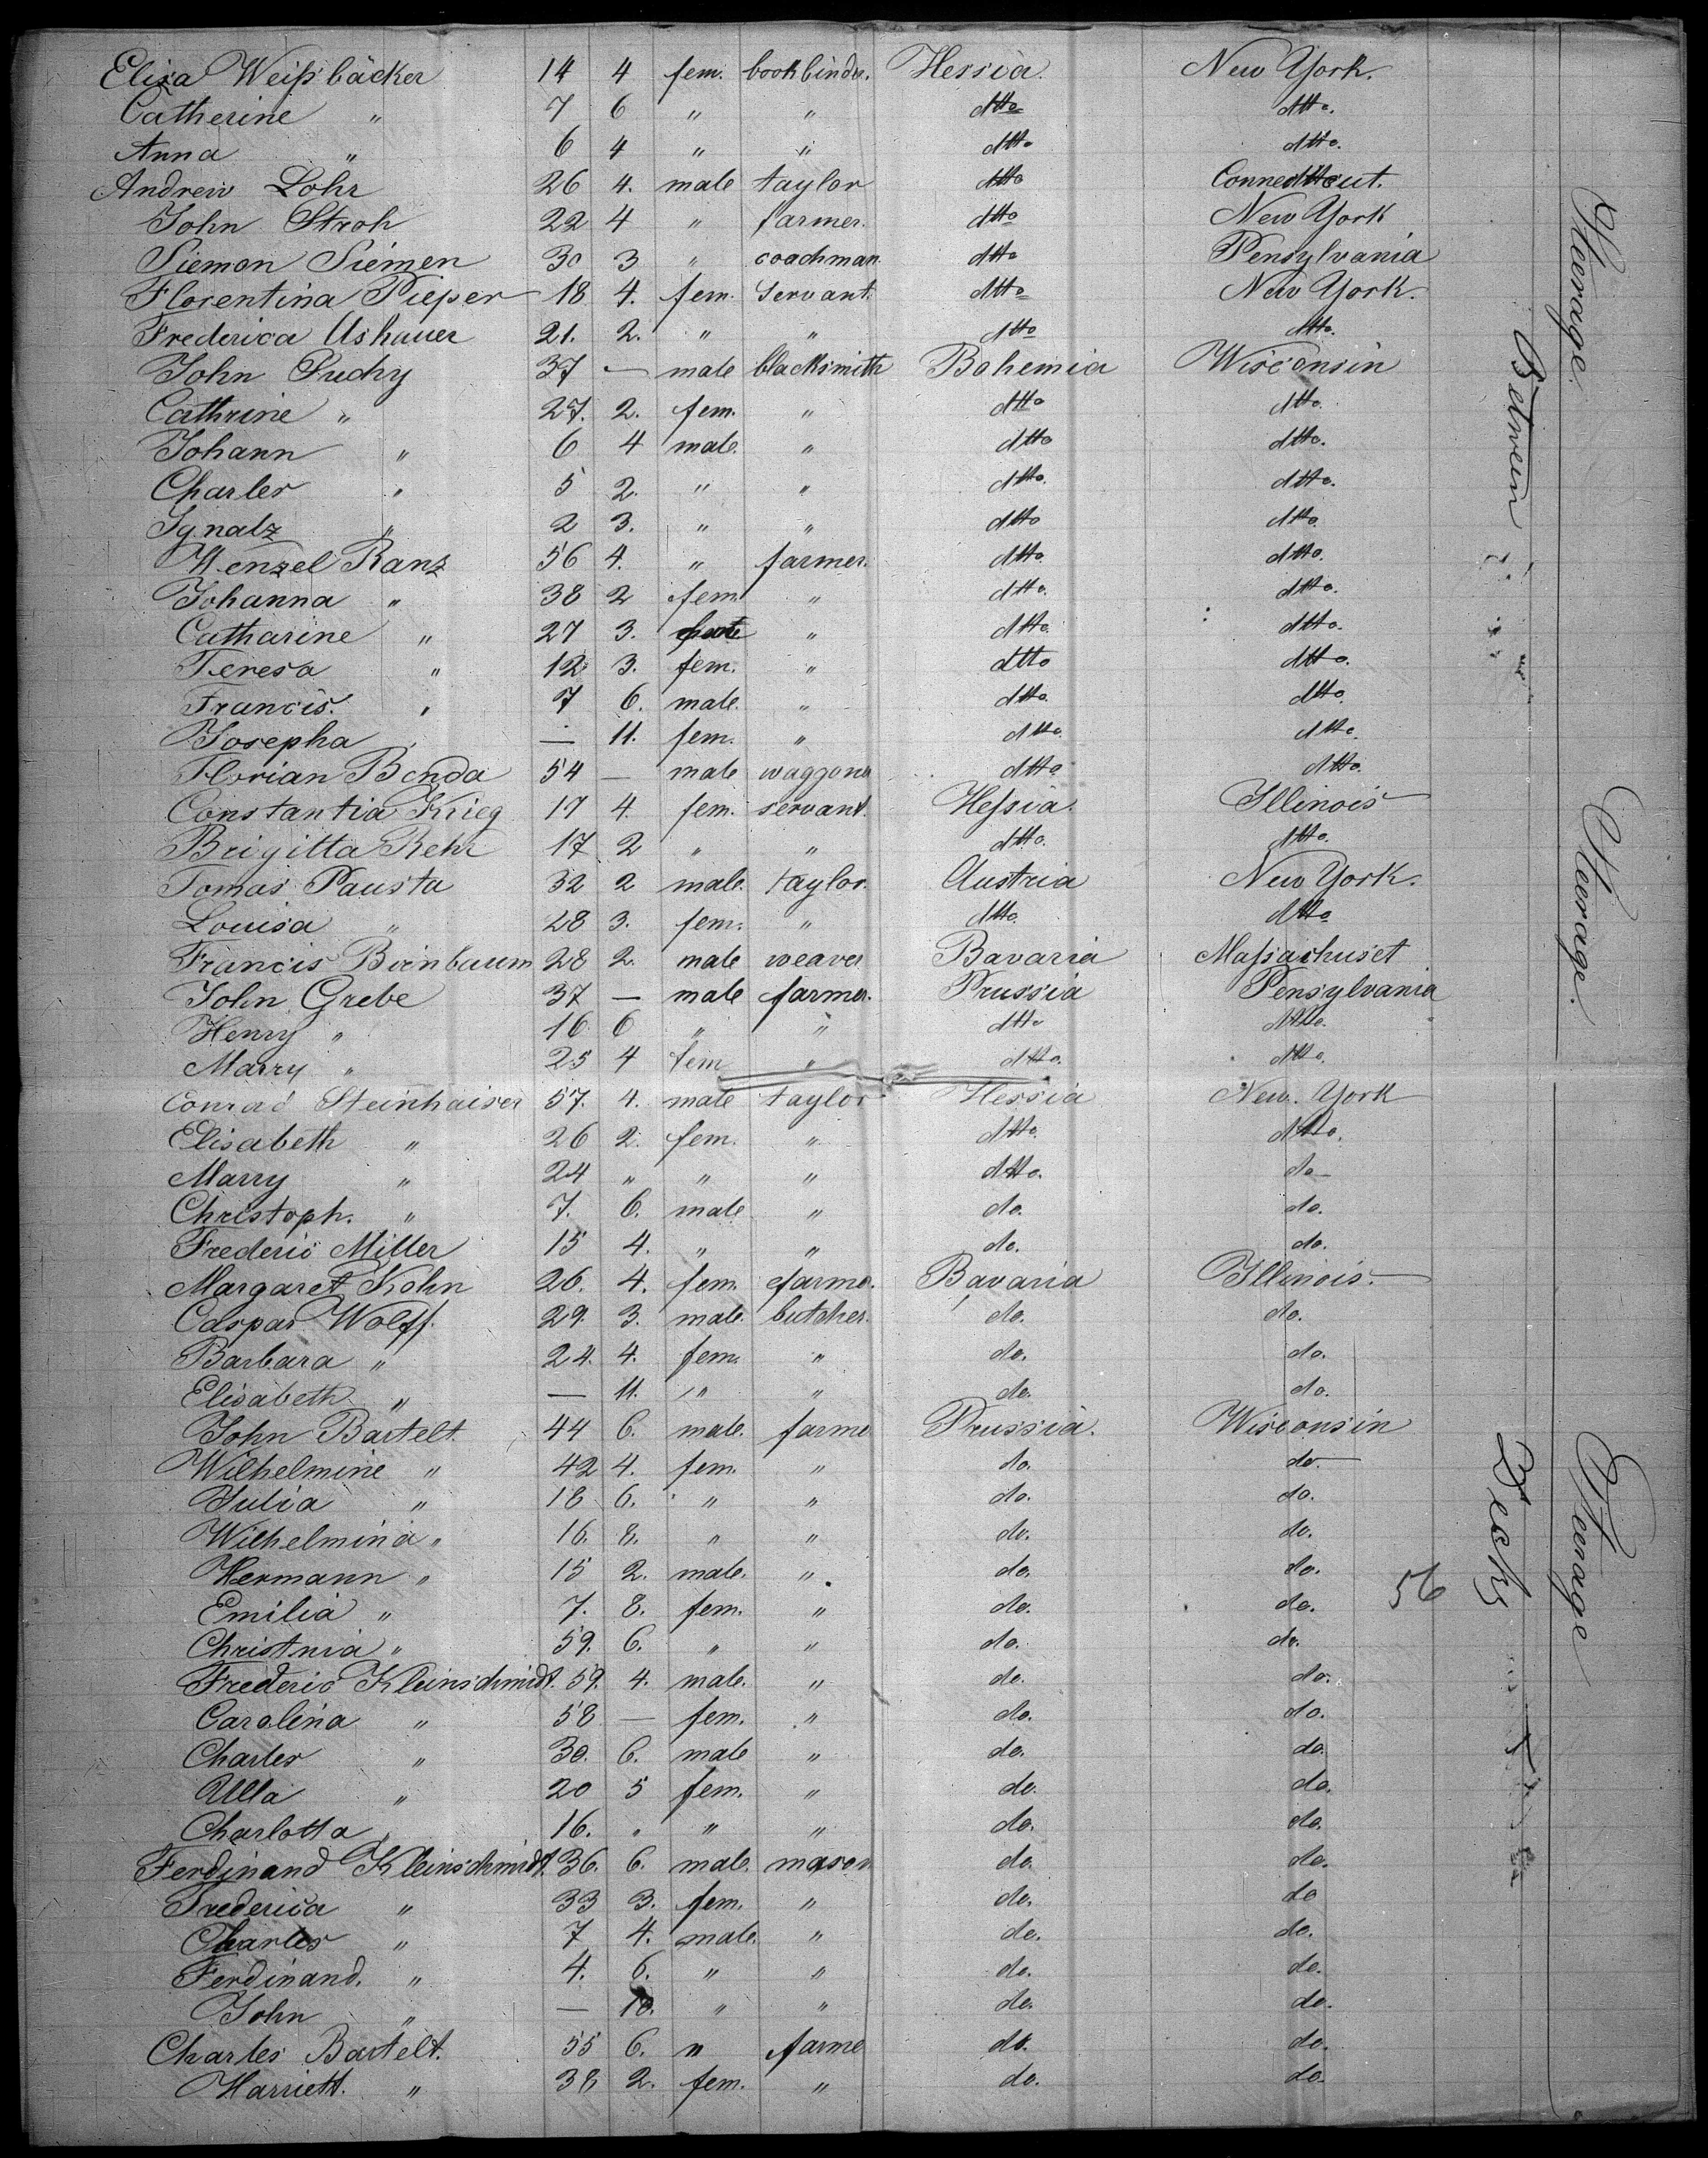 Eliza Weißbäcker 14 4 fem. bookbinder. Hessia. New York.
Catherine " 7 6 " " dtto dtto.
Anna " 6 4 " " dtto dtto.
Andrew Lohr 26 4. male taylor dtto Connecticut.
John Stroh 22 4 " farmer. dtto New York
Siemon Siemen 30 3 " coachman dtto Pensylvania
Florentina Pieper 18 4. fem. Servant. dtto New York.
Frederica Ushauer 21. 2. " " dtto dtto.
John Puchy 37 — male blacksmith Bohemia Wisconsin
Cathrine " 27. 2. fem. " dtto dtto.
Johann " 6 4 male. " dtto dtto.
Charles " 5 2. " " dtto. dtto.
Ignatz " 2 3. " " dtto dtto.
Wenzel Ranz 56 4. " farmer. dtto. dtto.
Johanna " 38 2 fem. " dtto. dtto.
Catharine " 27 3. " dtto. dtto.
Teresa " 12 3. fem. " dtto dtto.
Francis. " 7 6. male. " dtto. dtto.
Josepha " — 11. fem. " dtto. dtto.
Florian Benda 54 — male waggoner dtto dtto.
Constantia Krieg 17 4. fem. servant. Heſsia. Illinois
Brigitta Rehr 17 2 " " dtto. dtto.
Tomas Pausta 32 2 male. taylor. Austria New York.
Louisa " 28 3. fem. " dtto. dtto
Francis Birnbaum 28 2. male weaver Bavaria Maſsachuset
John Grebe 37 — male farmer. Prussia Pensylvania
Henry " 16 6 " " dtto dtto.
Marry " 25 4 fem " dtto. dtto.
Conrad Steinhaiser 57. 4. male taylor Hessia New. York
Elisabeth " 26 2. fem. " dtto. dtto.
Marry " 24 " " " dtto. do
Christoph. " 7. 6. male " do. do.
Frederic Miller 15 4. " " do. do.
Margaret Kohn 26. 4. fem. farme. Bavaria Illinois.
Caspar Wolff. 29. 3. male. butcher. do. do.
Barbara " 24. 4. fem. " do. do.
Elisabeth " — 11. " " do. do.
John Bartelt. 44 6. male. farme Prussia. Wisconsin
Wilhelmine " 42 4. fem. " do. do.
Julia " 18 6. " " do. do.
Wilhelmina " 16. 8. " " do. do.
Hermann " 15 2. male. " do. do. 56
Emilia " 7. 8. fem. " do. do.
Christnia " 59. 6. " " do. do.
Frederic Kleinschmidt. 59. 4. male. " do. do.
Carolina " 58 — fem. " do. do.
Charles " 30. 6. male " do. do.
Ulla " 20 5 fem. " do. do.
Charlotta " 16. " " " do. do.
Ferdinand Kleinschmidt. 36. 6. male. mason do. do.
Frederica " 33 3. fem. " do. do
Charles " 7 4. male. " do. do.
Ferdinand. " 4. 6. " " do. do.
John " — 10. " " do. do.
Charles Bartelt. 55 6. " farme do. do.
Harriett. " 38 2. fem. " do. do.
Steerage.
Steerage.
Steerage
Between
Decks